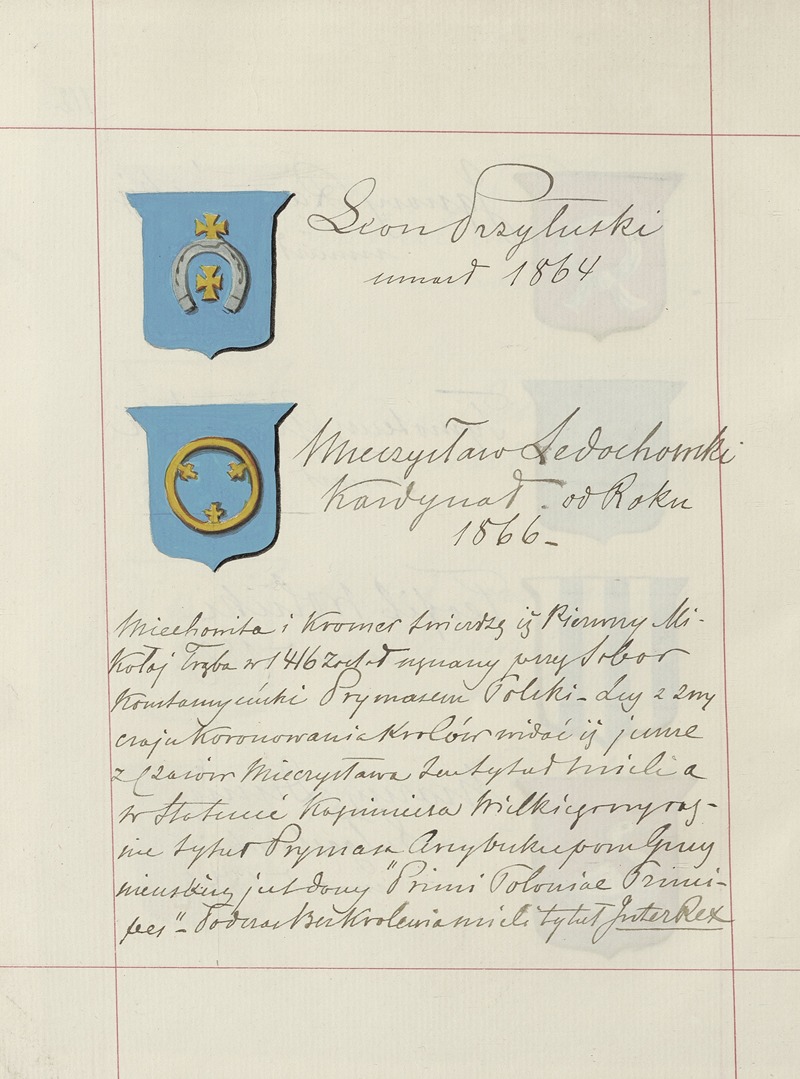 Leon Przyłuski
umarł 1864
Mieczysław Ledochowski
Kardynał od Roku
1866 –
Miechowita i Kromer twierdzą iż Pierwszy Mi-
kołaj Trąba w 1416 został uznany przez Sobor
Konstancyeński Prymasem Polski – Lecz z zwy
czaju Koronowania Królów widać iż jeszcze
z Czasów Mieczysława ten tytuł mieli a
w Statucie Kazimierza Wielkiego wyraź-
nie tytuł Prymasa Arcybiskupom Gnieź
nieńskim jest dany "Primi Poloniae Princi-
pes" – Podczas Bezkrólewia mieli tytuł InterRex